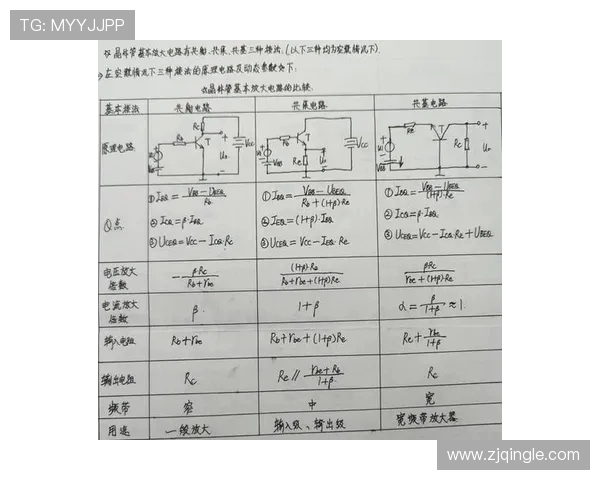 TG: MYYJJPP
☆晶体管基本放大电路有共射、共集、共基三种接法. (以下三种均为空载情况下).
在空载情况下三种接法的原理电路及动态参数如下:
晶体管基本放大电路的比较.
基本接法 共射电路 共集电路 共基电路
原理电路
Rb Rc T Ui VBB Uo VCC
Rb T Re Ui VBB Uo VCC
Re T Rc Ui VBB Uo
Q点
① IBQ = (VBB − UBEQ) / Rb
② ICQ = β·IBQ
③ UCEQ = VCC − ICQ·Rc
① IBQ = (VBB − UBEQ) / (Rb + (1+β)·Re)
② IEQ = (1+β)·IBQ
③ UCEQ = VCC − IEQ·Re
① IBQ = (VBB − UBEQ) / ((1+β)·Re)
② ICQ = β·IBQ
③ UCEQ = VCC − ICQ·Rc + UBEQ
电压放大倍数 −βRc / (Rb + rbe) (1+β)Re / (Rb + rbe + (1+β)Re) βRc / (rbe + (1+β)Re)
电流放大倍数 β 1+β α = β / (1+β) ≈ 1
输入电阻 Rb + rbe Rb + rbe + (1+β)Re Re + rbe / (1+β)
输出电阻 Rc Re // (rbe + Rb) / (1+β) Rc
频带 窄 中 宽
用途 一般放大 输入级、输出级 宽频带放大器
www.zjqingle.com